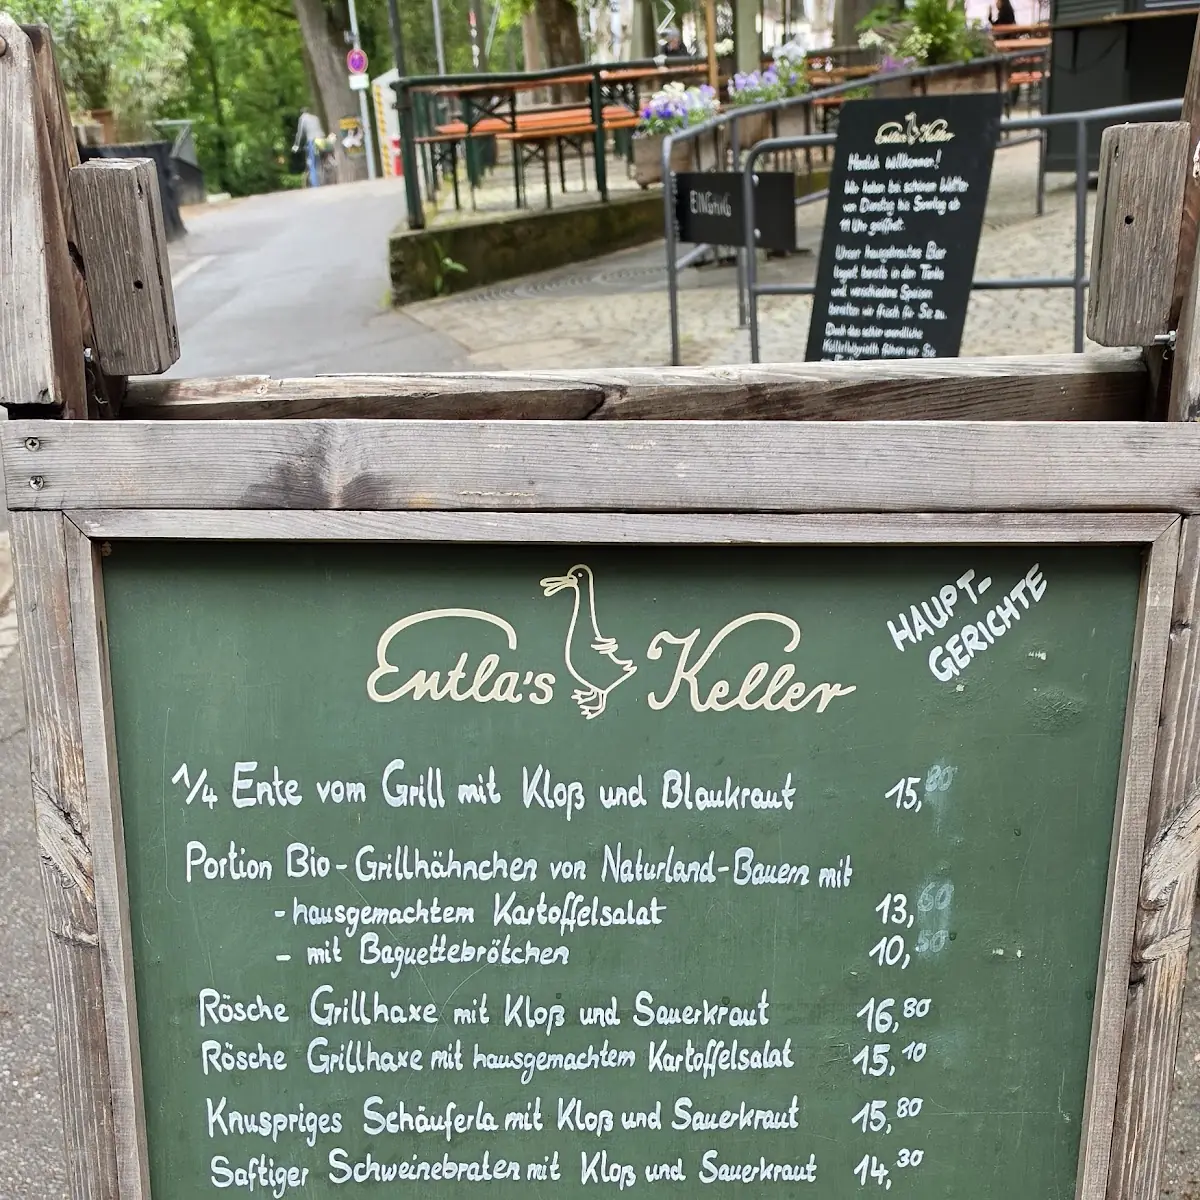 EINGANG
Entla's Keller
Herzlich willkommen!
Wir haben bei schönem Wetter
von Dienstag bis Sonntag ab
11 Uhr geöffnet.
Unser hausgebrautes Bier
lagert bereits in den Tanks
und verschiedene Speisen
bereiten wir frisch für Sie zu.
führen wir Sie
Entla's Keller
HAUPT-
GERICHTE
1/4 Ente vom Grill mit Kloß und Blaukraut 15,80
Portion Bio-Grillhähnchen von Naturland-Bauern mit
- hausgemachtem Kartoffelsalat 13,60
- mit Baguettebrötchen 10,50
Rösche Grillhaxe mit Kloß und Sauerkraut 16,80
Rösche Grillhaxe mit hausgemachtem Kartoffelsalat 15,10
Knuspriges Schäuferla mit Kloß und Sauerkraut 15,80
Saftiger Schweinebraten mit Kloß und Sauerkraut 14,30